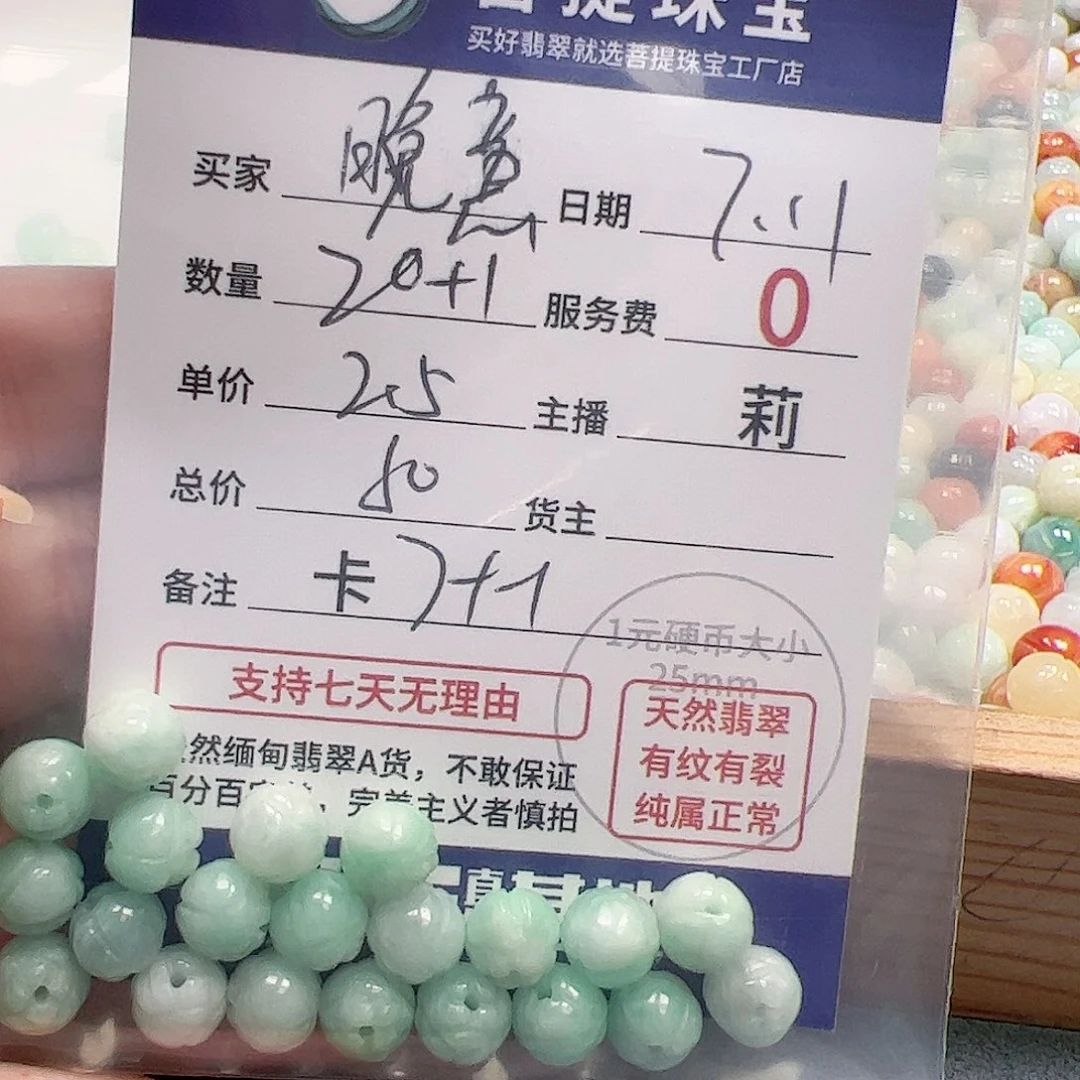 菩提珠宝
买好翡翠就选菩提珠宝工厂店
买家 晚意 日期 7.11
数量 20+1 服务费 0
单价 2.5 主播 莉
总价 50 货主
备注 卡7+1
1元硬币大小
25mm
支持七天无理由
天然翡翠
有纹有裂
纯属正常
然缅甸翡翠A货，不敢保证
百分百完美，完美主义者慎拍